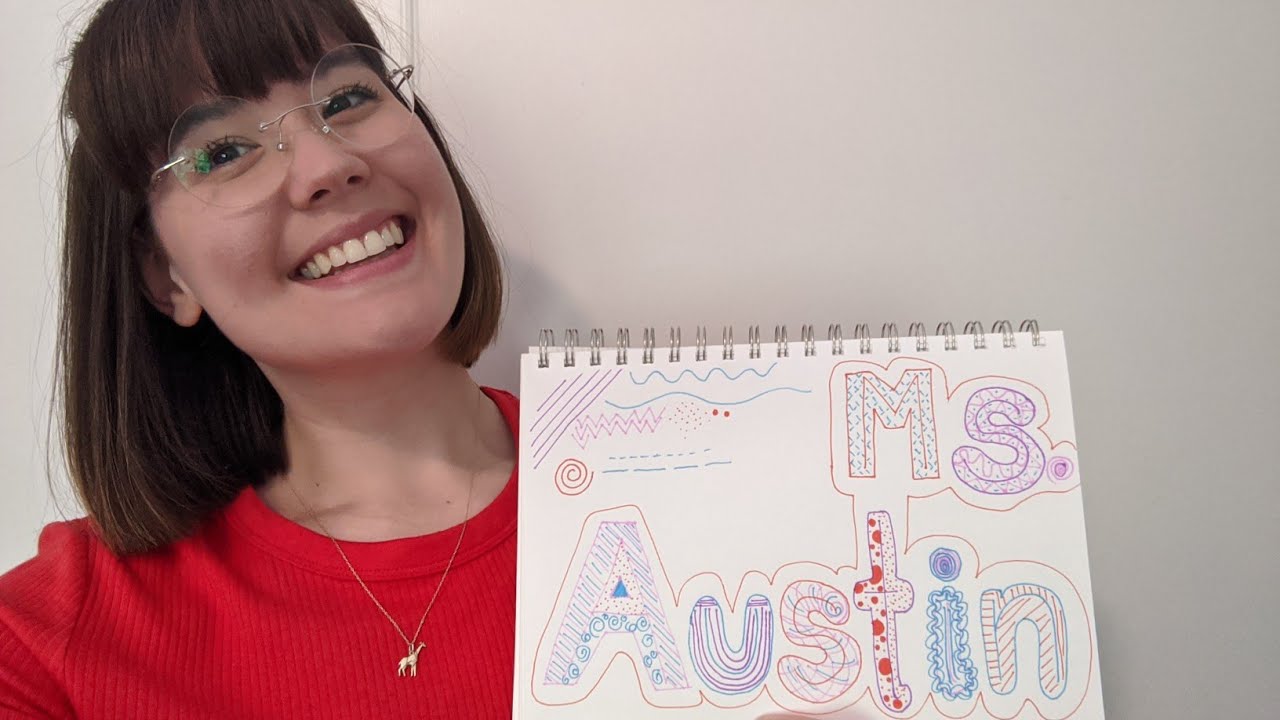 Ms.
Austin